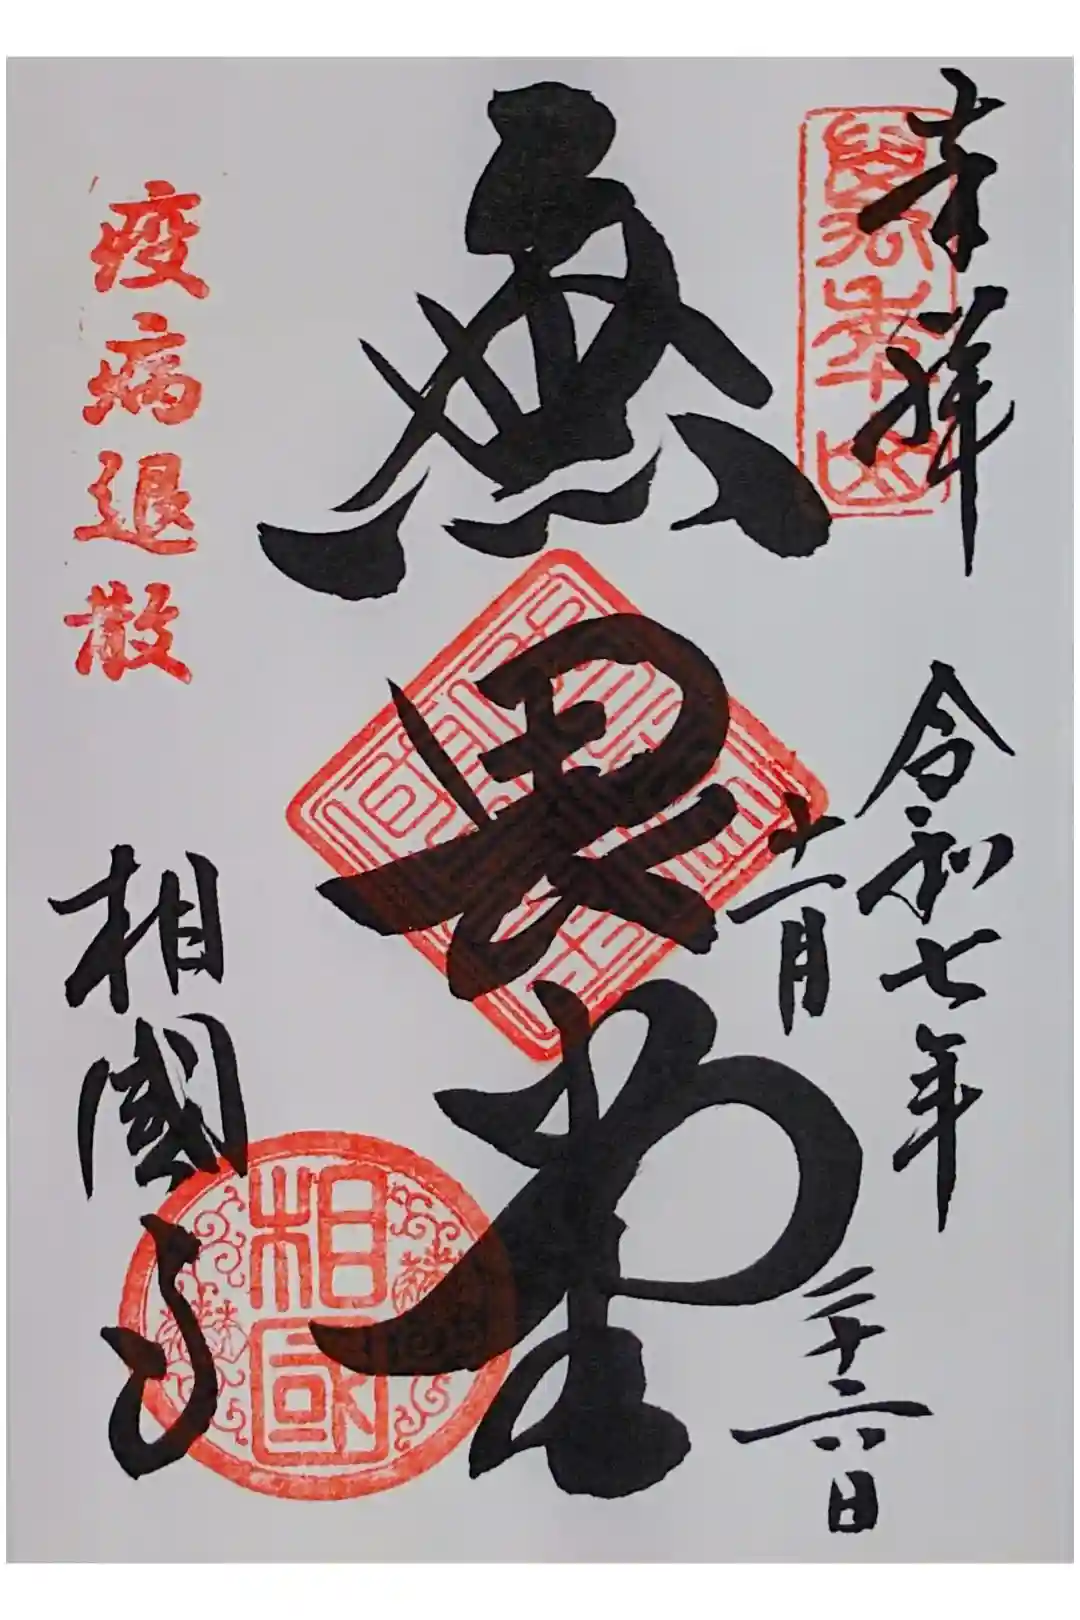 奉拝
令和七年
十一月
二十六日
無畏堂
疫病退散
相國寺
相國